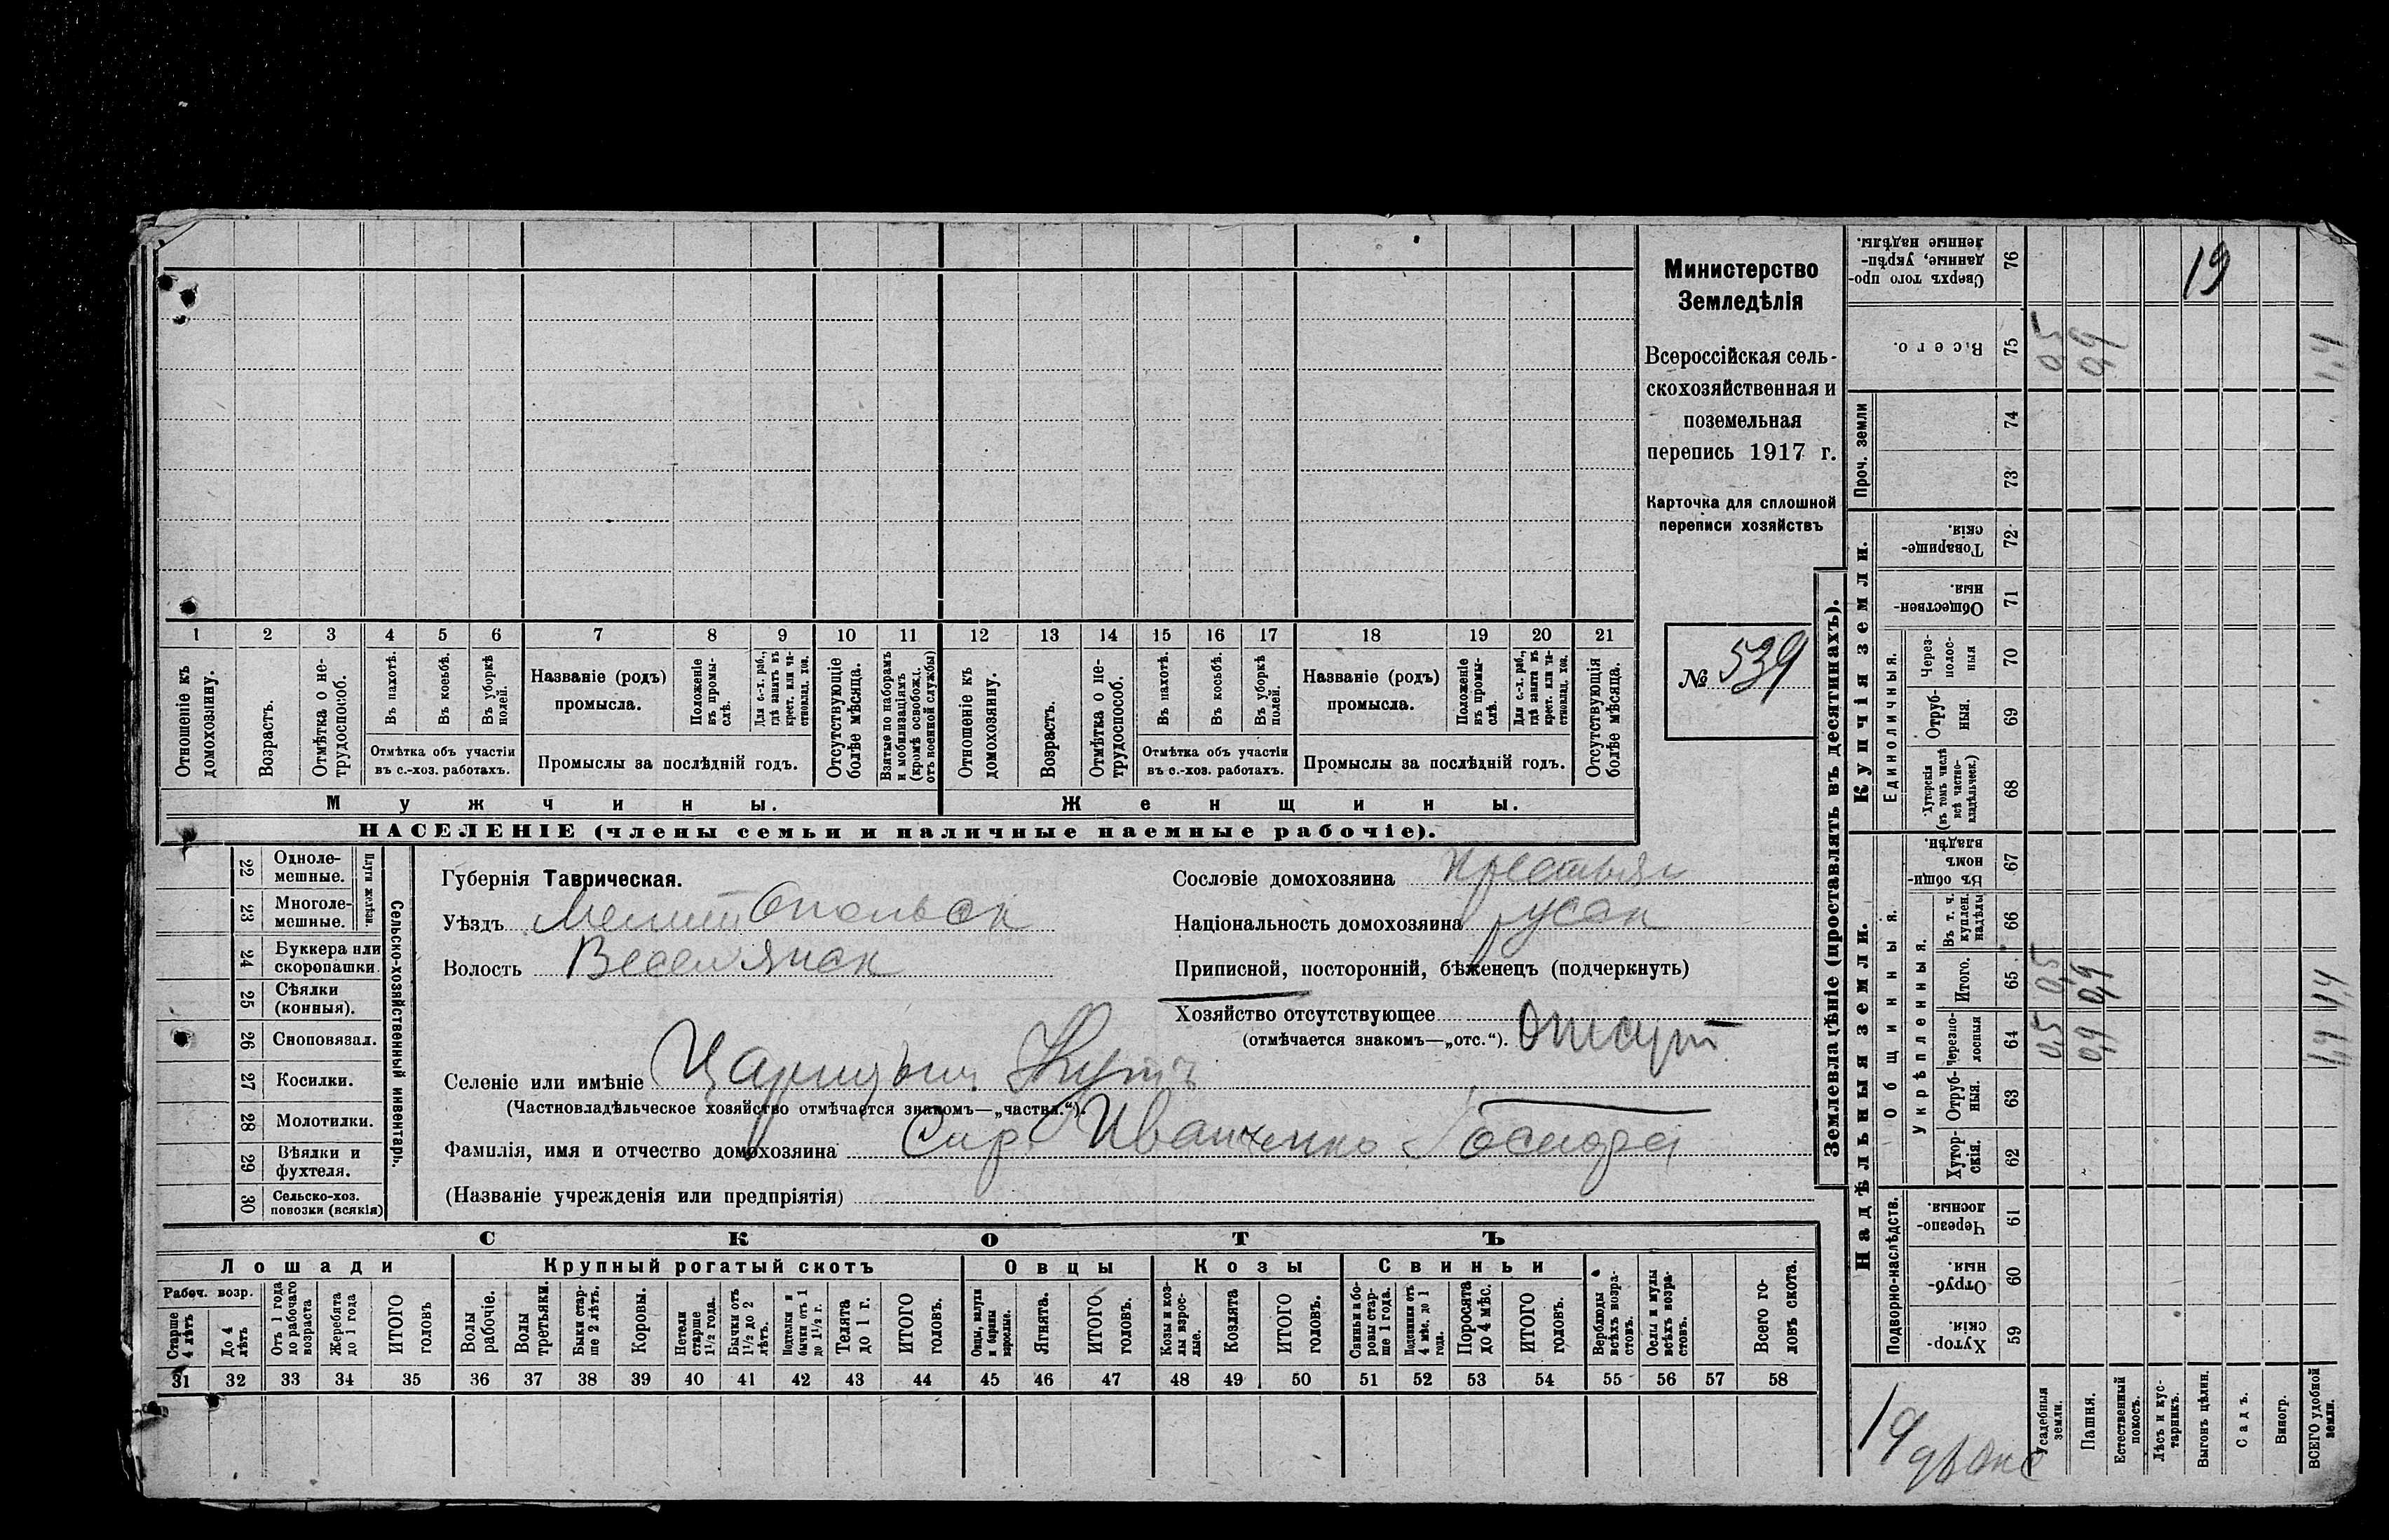 Министерство
Земледѣлія
Всероссійская сель-
скохозяйственная и
поземельная
перепись 1917 г.
Карточка для сплошной
переписи хозяйствъ
№ 539
1 2 3 4 5 6 7 8 9 10 11 12 13 14 15 16 17 18 19 20 21
Отношеніе къ домохозяину.
Возрастъ.
Отмѣтка о не-трудоспособ.
Въ пахотѣ.
Въ косьбѣ.
Въ уборкѣ полей.
Отмѣтка объ участіи
въ с.-хоз. работахъ.
Названіе (родъ)
промысла.
Положеніе въ промы-слѣ.
Для с.-х. раб., гдѣ занятъ въ крест. или ча-стновлад. хоз.
Промыслы за послѣдній годъ.
Отсутствующіе болѣе мѣсяца.
Взятые по наборамъ и мобилизаціямъ (кромѣ освобожд. отъ военной службы)
Отношеніе къ домохозяину.
Возрастъ.
Отмѣтка о не-трудоспособ.
Въ пахотѣ.
Въ косьбѣ.
Въ уборкѣ полей.
Отмѣтка объ участіи
въ с.-хоз. работахъ.
Названіе (родъ)
промысла.
Положеніе въ промы-слѣ.
Для с.-х. раб., гдѣ занята въ крест. или ча-стновлад. хоз.
Промыслы за послѣдній годъ.
Отсутствующія болѣе мѣсяца.
Мужчины.
Женщины.
НАСЕЛЕНІЕ (члены семьи и наличные наемные рабочіе).
22 Одноле-мешные.
23 Многоле-мешные.
Плуги желѣзн.
24 Буккера или скоропашки.
25 Сѣялки (конныя).
26 Сноповязал.
27 Косилки.
28 Молотилки.
29 Вѣялки и фухтеля.
30 Сельско-хоз. повозки (всякія)
Сельско-хозяйственный инвентарь.
Губернія Таврическая.
Уѣздъ Мелитопольск
Волость Веселянск
Сословіе домохозяина Крестьян
Національность домохозяина русск
Приписной, посторонній, бѣженецъ (подчеркнуть)
Хозяйство отсутствующее
(отмѣчается знакомъ—„отс.“). Отсут
Селеніе или имѣніе Царицын Кутъ
(Частновладѣльческое хозяйство отмѣчается знакомъ—„частвл.“).
Фамилія, имя и отчество домохозяина Сир. Иванченко
(Названіе учрежденія или предпріятія)
СКОТЪ
Лошади
Крупный рогатый скотъ
Овцы
Козы
Свиньи
Рабоч. возр.
Старше 4 лѣтъ
До 4 лѣтъ
Отъ 1 года до рабочаго возраста
Жеребята до 1 года
ИТОГО головъ
Волы рабочіе.
Волы третьяки.
Быки стар-ше 2 лѣтъ.
Коровы.
Нетели старше 1½ года.
Бычки отъ 1½ до 2 лѣтъ.
Подтелки и бычки отъ 1 до 1½ г.
Телята до 1 г.
ИТОГО головъ.
Овцы, валухи и бараны взрослые.
Ягнята.
ИТОГО головъ.
Козы и коз-лы взрос-лые.
Козлята
ИТОГО головъ.
Свиньи и бо-ровы стар-ше 1 года.
Подсвинки отъ 4 мѣс. до 1 года.
Поросята до 4 мѣс.
ИТОГО головъ.
Верблюды всѣхъ возра-стовъ.
Ослы и мулы всѣхъ возра-стовъ.
Всего го-ловъ скота.
31 32 33 34 35 36 37 38 39 40 41 42 43 44 45 46 47 48 49 50 51 52 53 54 55 56 57 58
Землевладѣніе (проставлять въ десятинахъ).
Сверхъ того про-данные, укрѣп-ленные надѣлы. 76 19
Всего. 75 0,5 0,9 1,4
Проч. земли
74
73
Купчія земли.
Товарище-скія. 72
Обществен-ныя. 71
Единоличныя.
Через-полос-ныя 70
Отруб-ныя. 69
Хуторскія (въ томъ числѣ всѣ частно-владѣльческ.) 68
Надѣльныя земли.
Общинныя.
Въ общи-номъ владѣн. 67
Укрѣпленныя.
Въ т. ч. куплен. надѣлы 66
Итого. 65 0,5 0,9 1,4
Черезпо-лосныя 64 0,5 0,9 1,4
Отруб-ныя. 63
Хутор-скія. 62
Подворно-наслѣдств.
Черезпо-лосныя. 61
Отруб-ныя. 60
Хутор-скія. 59
Усадебныя земли.
Пашня.
Естественный покосъ.
Лѣсъ и кус-тарникъ.
Выгонъ цѣлин.
Садъ.
Виногр.
ВСЕГО удобной земли.
19